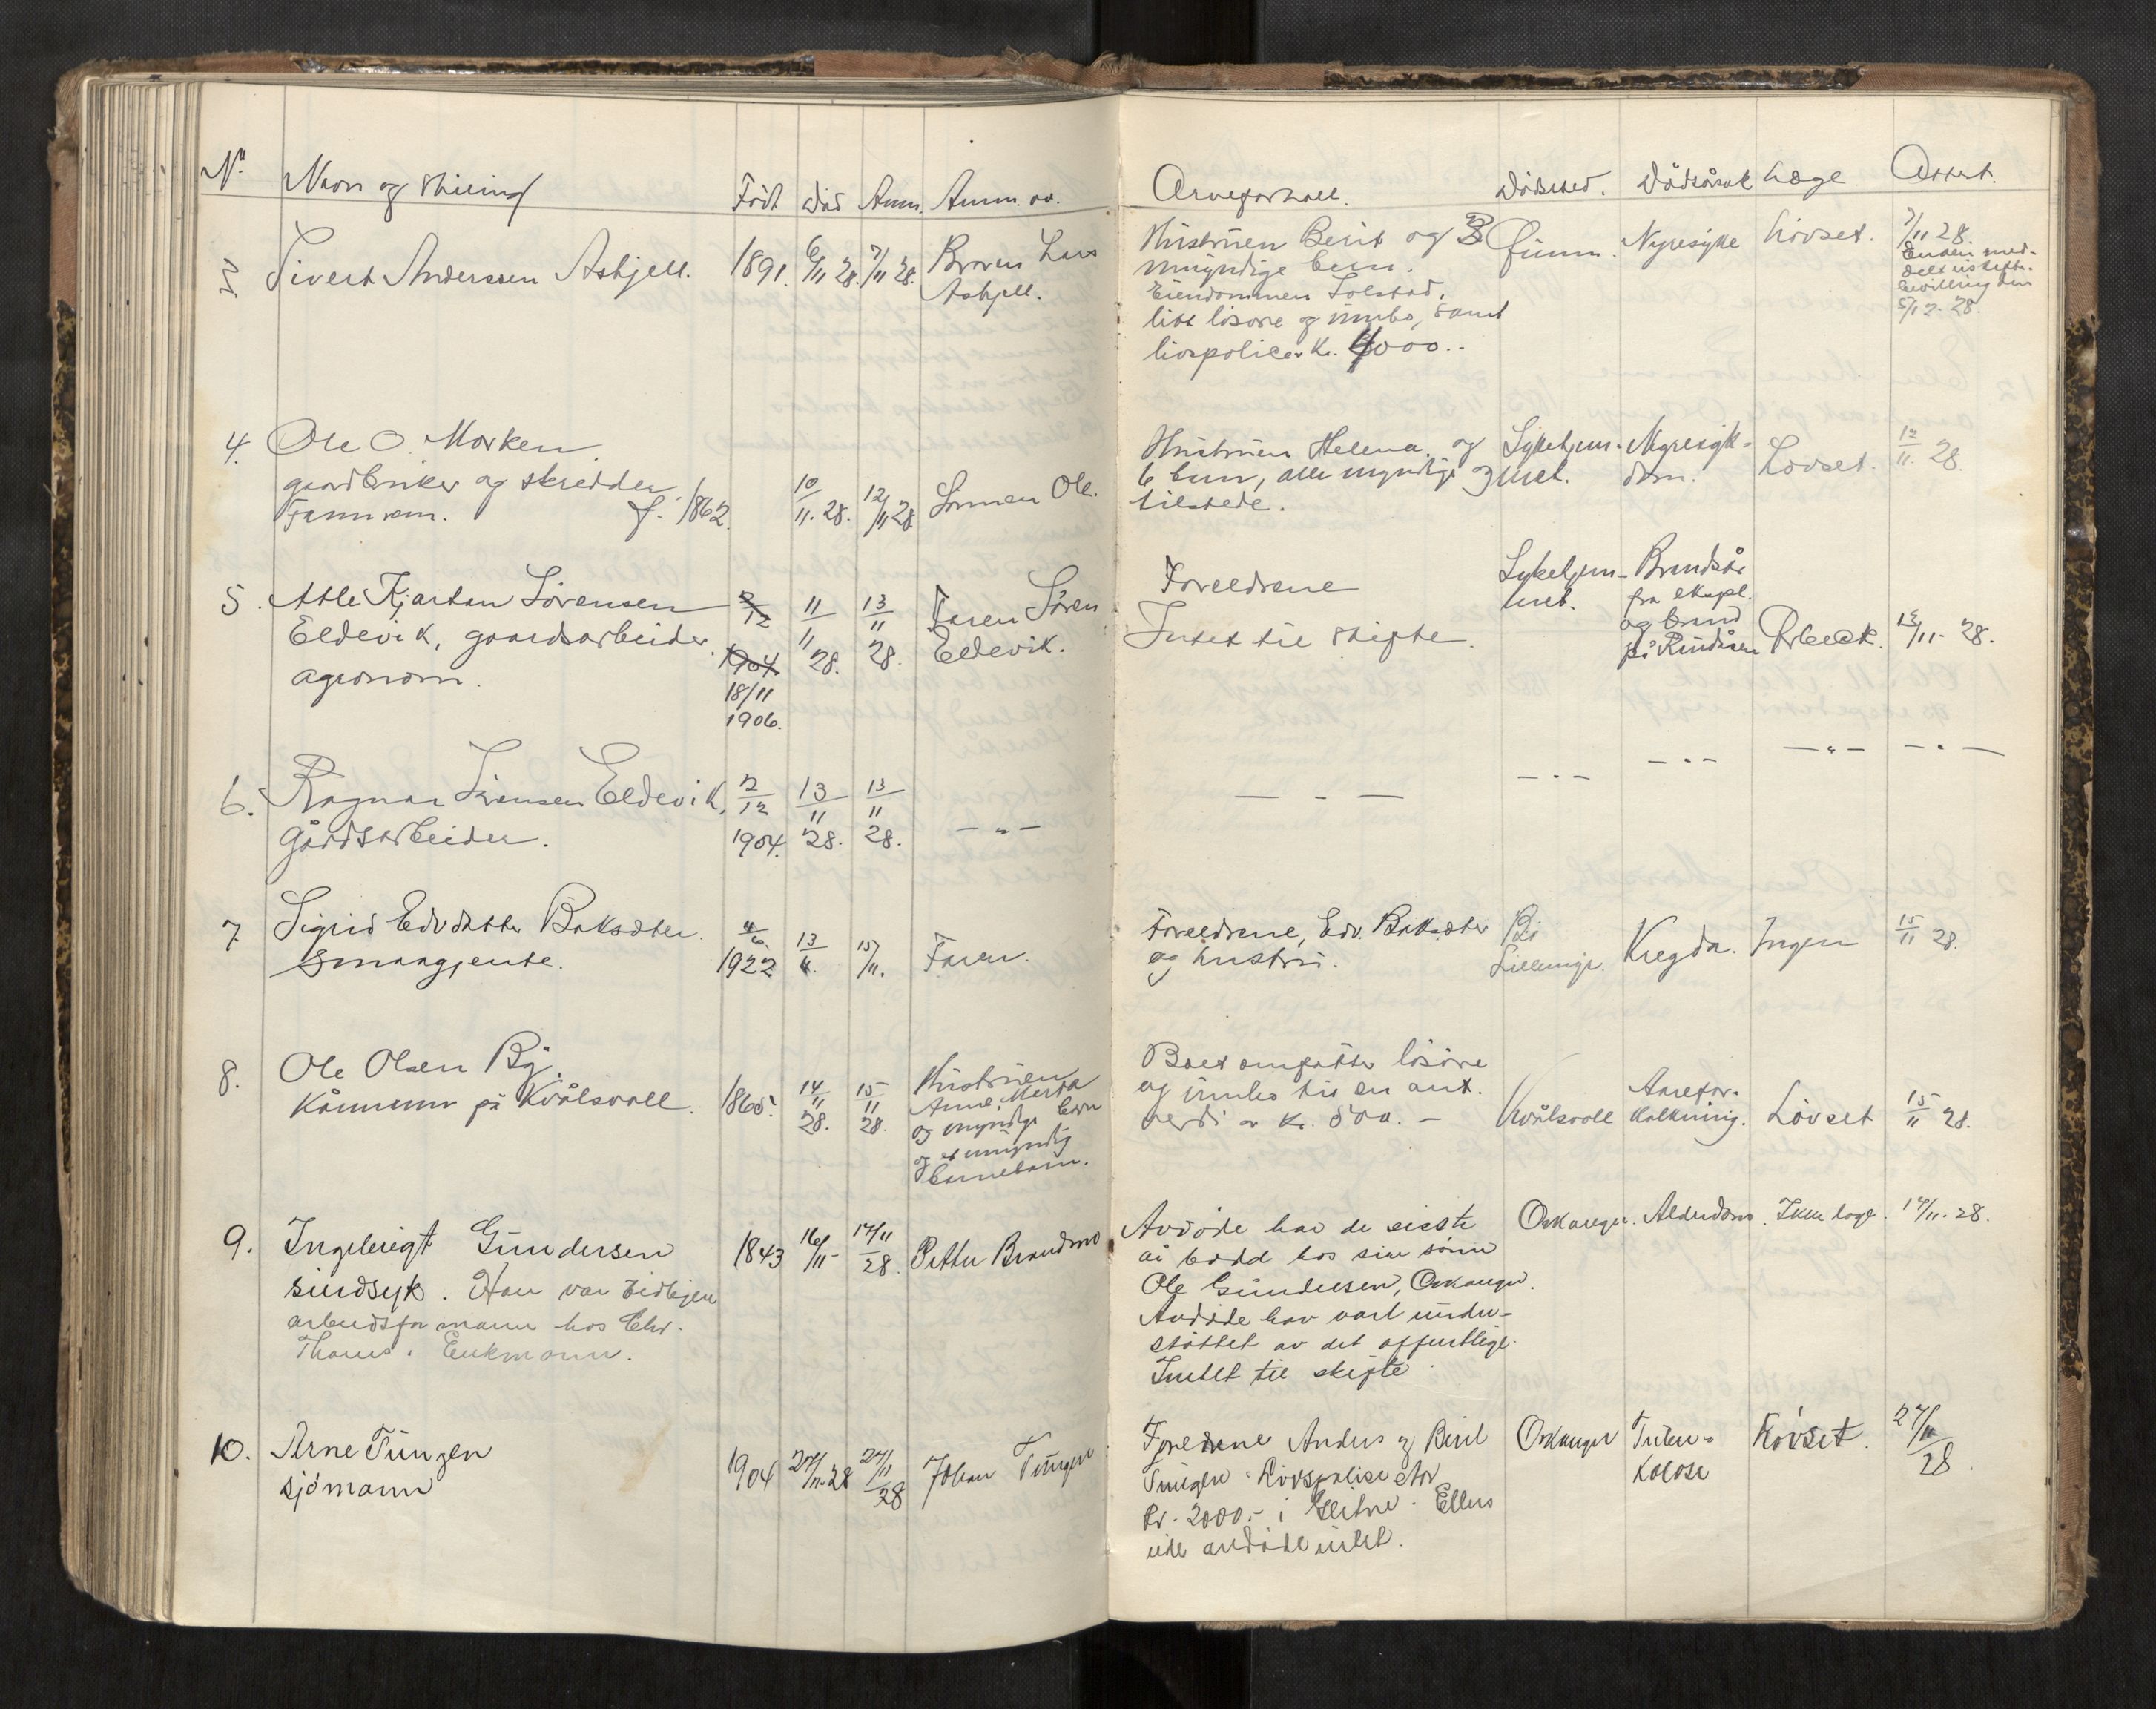 Nr. Navn og stilling Født Död Anm. Anm. av. Arveforhold. Dödssted. Dödsårsak Læge Attest.
3 Sivert Anderssen Asbjell. 1891. 6/11 28. 7/11 28. Broren Lars
Asbjell.
Hustruen Berit og 3
umyndige børn.
Eiendommen Solstad,
litt lösöre og innbo, samt
livspolice kr. 4000.-
Nyresyke Lövset. 7/11 28.
Enken med-
delt uskifte-
bevilling den
5/12-28.
4. Ole O. Morken
gaardbruker og skredder
Fannrem. f. 1862. 10/11. 28. 12/11 28 Sønnen Ole.
Hustruen Helena og
6 børn, alle myndige og
tilstede.
Sykehjem-
met.
Nyresyk-
dom.
Lövset. 12/11. 28.
5. Atle Kjartan Sörensen
Eldevik, gaardsarbeider.
agronom.
2/12
1904
18/11
1906.
11/11 28. 13/11 28. Faren Sören
Eldevik.
Foreldrene
Intet til skifte.
Sykehjem-
met.
Brandsår
fra ekspl.
og brand
på
13/11- 28.
6. Ragnar Sörensen Eldevik,
gårdsarbeider.
2/12 1904. 13/11 28. 13/11 28. — " —
— - — — " — — " — — " — — " —
7. Sigrid Edv.datter Baksæter.
Smaagjente.
4/6 1922 13/11. 15/11. Faren.
Foreldrene, Edv. Baksæter
og hustru.
Ingen 15/11 28.
8. Ole Olsen Bÿ.
Kårmann på Kvålsvoll. 1865. 14/11 28. 15/11 28.
Hustruen
Anne, Marta
og myndige børn
og et umyndig
barnebarn.
Boet omfatter lösöre
og innbo til en ant.
verdi av kr. 500.-
Kvålsvoll
Aarefor-
kalkning.
Lövset 15/11 28.
9. Ingebrigt Gundersen
sindsyk. Han var tidligere
arbeidsformann hos Chr.
Thams. Enkmann.
1843 16/11- 17/11 28. Petter Brandmo
Avdöde har de siste
år bodd hos sin sönn
Ole Gundersen, Orkanger.
Avdöde har vært under-
støttet av det offentlige.
Intet til skifte.
Orkanger. Alderdom. Ikke læge. 17/11-28.
10. Arne Tungen
sjömann
1904 27/11-28 27/11 28 Johan Tungen
Foreldrene Anders og Beret
Tungen. Livspolise stor
kr. 2000.- i Gleitne. Ellers
eide avdöde intet.
Orkanger
Tuber-
kolose
Lövset. 27/11 28